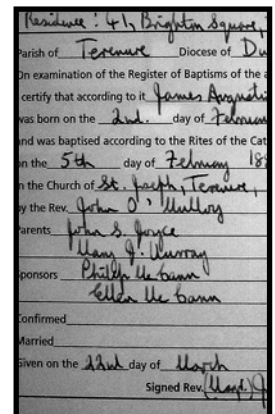 Residence: 41, Brighton Square,
Parish of Terenure Diocese of Du
On examination of the Register of Baptisms of the a
certify that according to it James Augusti
was born on the 2nd. day of Februar
and was baptised according to the Rites of the Cat
on the 5th day of February 18
in the Church of St. Joseph, Terenure,
by the Rev. John O' Mulloy
Parents John S. Joyce
Mary J. Murray
ponsors Philip Mc Cann
Ellen Mc Cann
Confirmed
Married
Given on the 22nd day of March
Signed Rev.